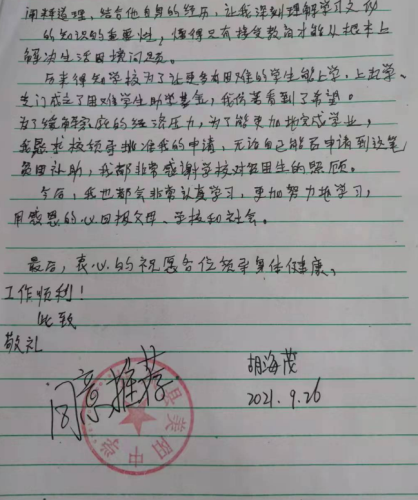 阐释道理,结合他自身的经历,让我深刻理解学习文化
的知识的重要性,懂得只有接受教育才能从根本上
解决生活困境问题。
历来得知学校为了让更多有困难的学生能上学,上起学,
专门成立了困难学生助学基金,我仿若看到了希望。
为了缓解家庭的经济压力,为了能更加地完成学业,
我恳求校领导批准我的申请,无论自己能否申请到这笔
贫困补助,我都非常感谢学校对贫困生的照顾。
今后,我也都会非常认真学习,更加努力地学习,
用感恩的心回报父母、学校和社会。
最后,衷心的祝愿各位领导身体健康、
工作顺利!
此致
敬礼
同意推荐
胡海茂
2021.9.26